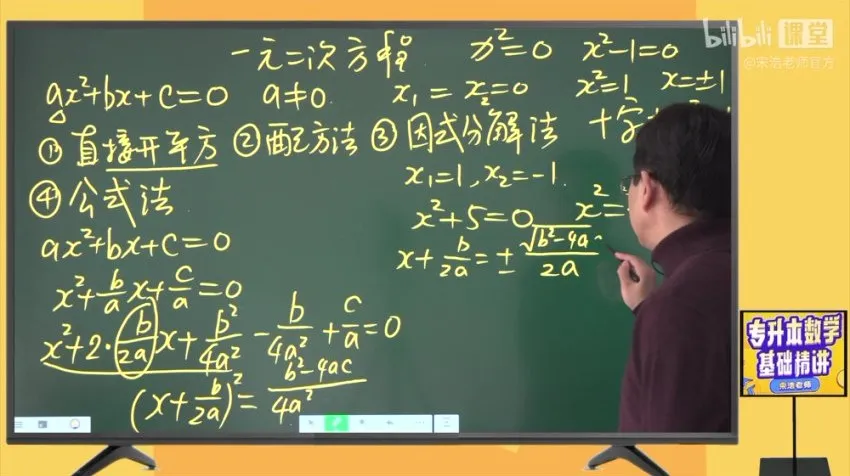 bilibili 课堂
@宋浩老师官方
一元二次方程 x²=0 x²-1=0
ax²+bx+c=0 a≠0 x₁=x₂=0 x²=1 x=±1
①直接开平方 ②配方法 ③因式分解法 十字
x₁=1, x₂=-1
④公式法
x²+5=0 x²=
ax²+bx+c=0
x+b/2a=±√b²-4a/2a
x²+b/a x+c/a=0
x²+2·b/2a x+b²/4a²-b/4a²+c/a=0
(x+b/2a)²=b²-4ac/4a²
专升本数学
基础精讲
宋浩老师